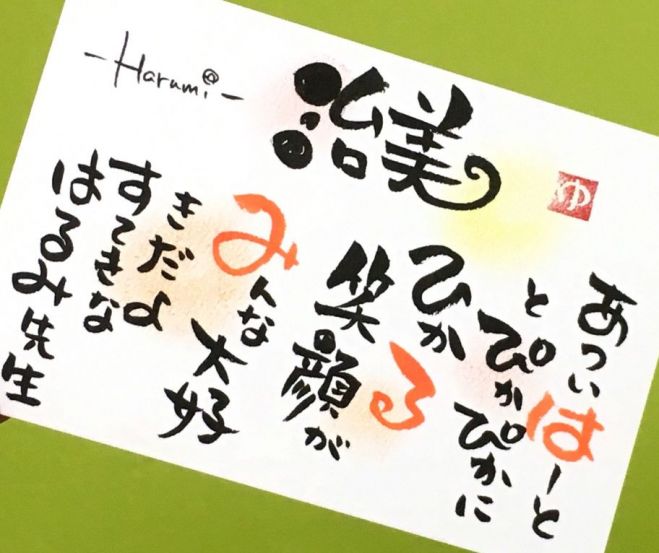 -Harumi-
治美
ゆ
あついはーと
とぴかぴかに
ひかる
笑顔が
みんな大好
きだよ
すてきな
はるみ先生